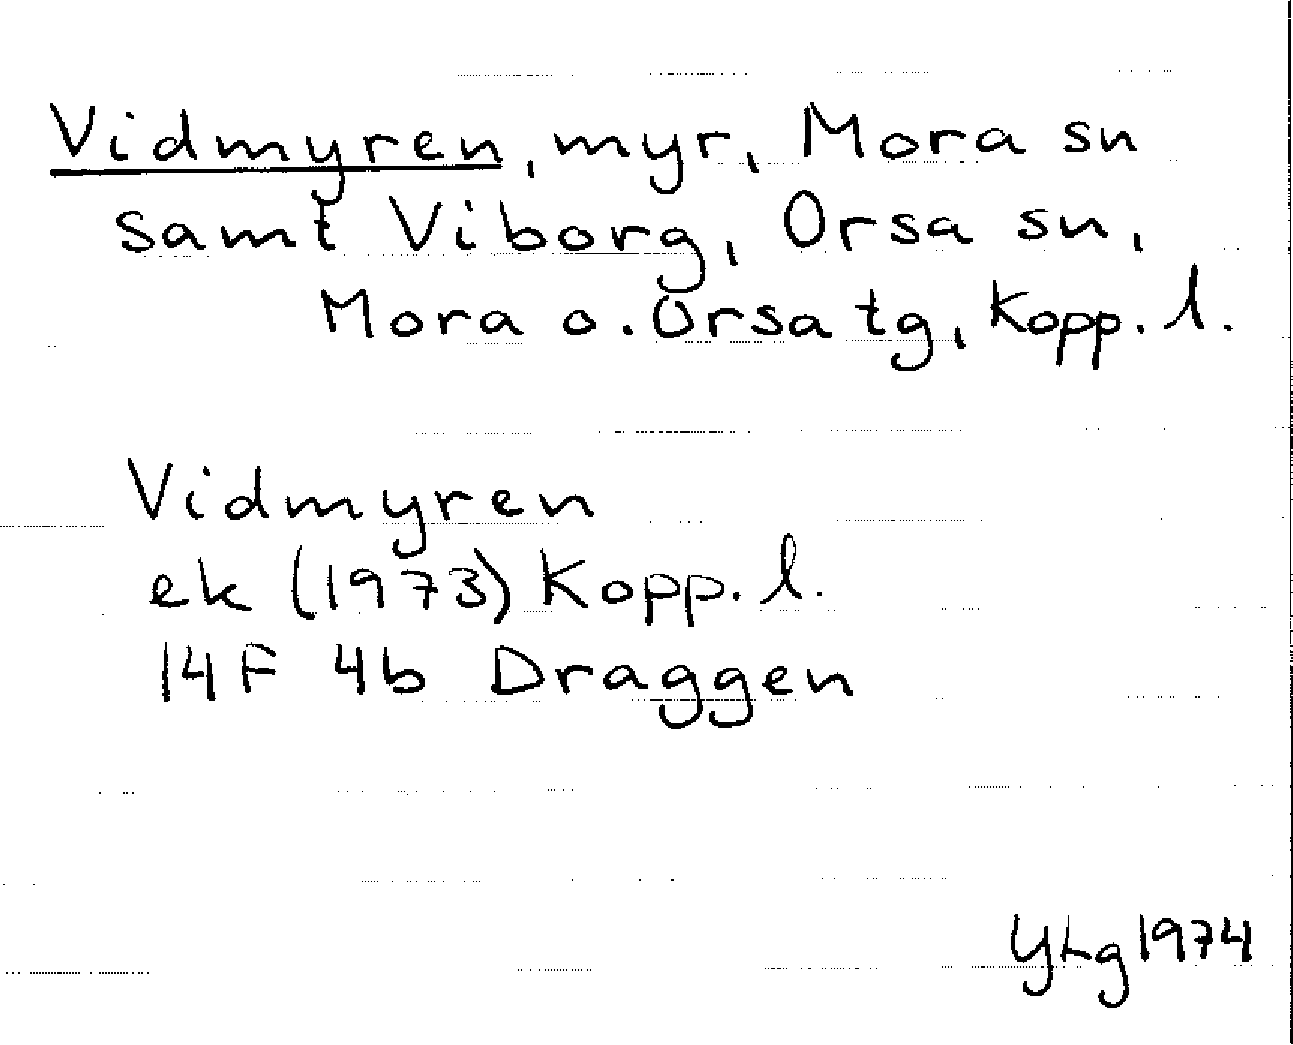 Vidmyren, myr, Mora sn
samt Viborg, Orsa sn,
Mora o. Orsa tg, Kopp. l.
Vidmyren
ek (1973) Kopp. l.
14F 4b Draggen
YLg 1974